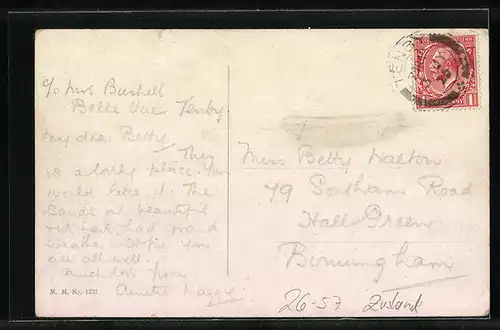 c/o Mrs Bushell
Belle Vue Tenby
My dear Betty, This
is a lovely place. You
would like it. The
Sands are beautiful
We have had grand
weather. Hope you
are all well.
Much love from
Auntie Maggie
M. M. Nr. 1237
TENBY
Miss Betty Walton
79 Southam Road
Hall Green
Birmingham
26-57 Zustand